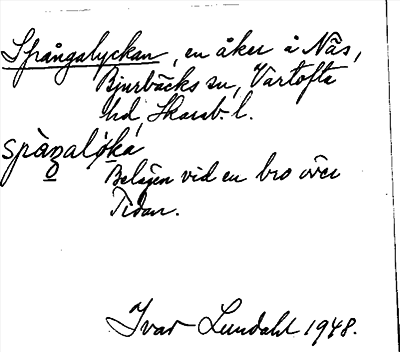 Spångalyckan, en åker å Näs,
Bjurbäcks sn, Vartofta
hd, Skarab. l.
spàŋalǿka
Belägen vid en bro över
Tidan.
Ivar Lundahl 1948.